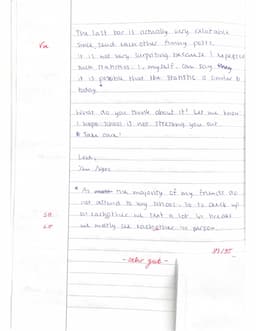 The last bar is actually very relatable
since, send each other funny posts.
it is not very surprising because I
such statistics. I, myself, can say they
it is possible that the statistic is similar to
today.*
What do you think about it? Let me know
I hope school is not stressing you out
& Take care!
Love,
* As the majority of my friends do
not attend to my school, so to
on eachother we text a lot. In
we mostly see eachother in person.
- sehr gut -